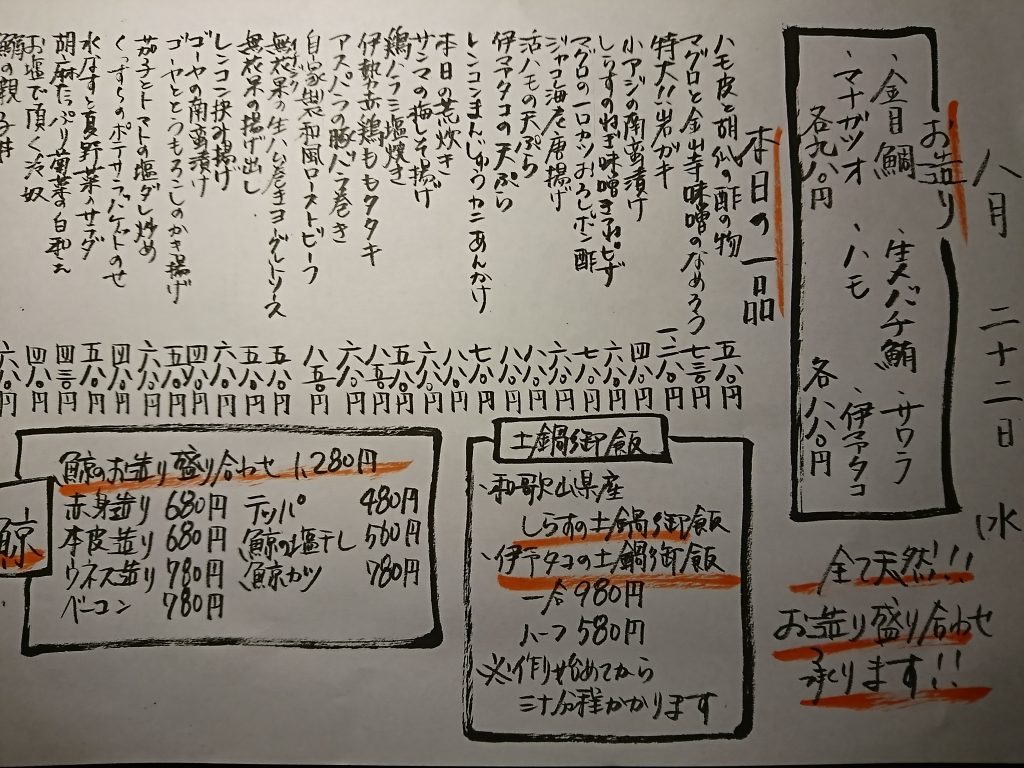 八月 二十二日 (水
お造り
、金目鯛 、生本バチ鮪 、サワラ
、マナガツオ 、ハモ 、伊予タコ
各九八〇円 各八八〇円
全て天然!!
お造り盛り合わせ
承ります!!
本日の一品
ハモ皮と胡瓜の酢の物 五八〇円
マグロと金山寺味噌のなめろう 七三〇円
特大!!岩ガキ 一、二八〇円
小アジの南蛮漬け 四八〇円
しらすのねぎ味噌ピザ 六八〇円
マグロの一口カツおろしポン酢 七八〇円
ジャコ海老唐揚げ 六八〇円
活ハモの天ぷら 八八〇円
伊予タコの天ぷら 八八〇円
レンコンまんじゅうカニあんかけ 七八〇円
本日の荒炊き 八八〇円
サンマの梅しそ揚げ 六八〇円
鶏ハラミ塩焼き 五八〇円
伊勢赤鶏ももタタキ 八五〇円
アスパラの豚バラ巻き 六八〇円
自家製和風ローストビーフ 八五〇円
無花果の生ハム巻きヨーグルトソース 五八〇円
無花果の揚げ出し
レンコン挟み揚げ 六八〇円
ゴーヤの南蛮漬け 四八〇円
ゴーヤととうもろこしのかき揚げ 五八〇円
茄子とトマトの塩ダレ炒め 六八〇円
のポテサラバケットのせ 四八〇円
水なすと夏野菜のサラダ 五八〇円
胡麻たっぷり菊菜の白和え 四三〇円
お塩で頂く冷奴 四八〇円
の親子丼 六八〇円
土鍋御飯
、和歌山県産
しらすの土鍋御飯
、伊予タコの土鍋御飯
一合980円
ハーフ580円
※作り始めてから
三十分程かかります
鯨
鯨のお造り盛り合わせ 1,280円
赤身造り 680円 テッパ 480円
本皮造り 680円 鯨の塩干し 560円
ウネス造り 780円 鯨カツ 780円
ベーコン 780円